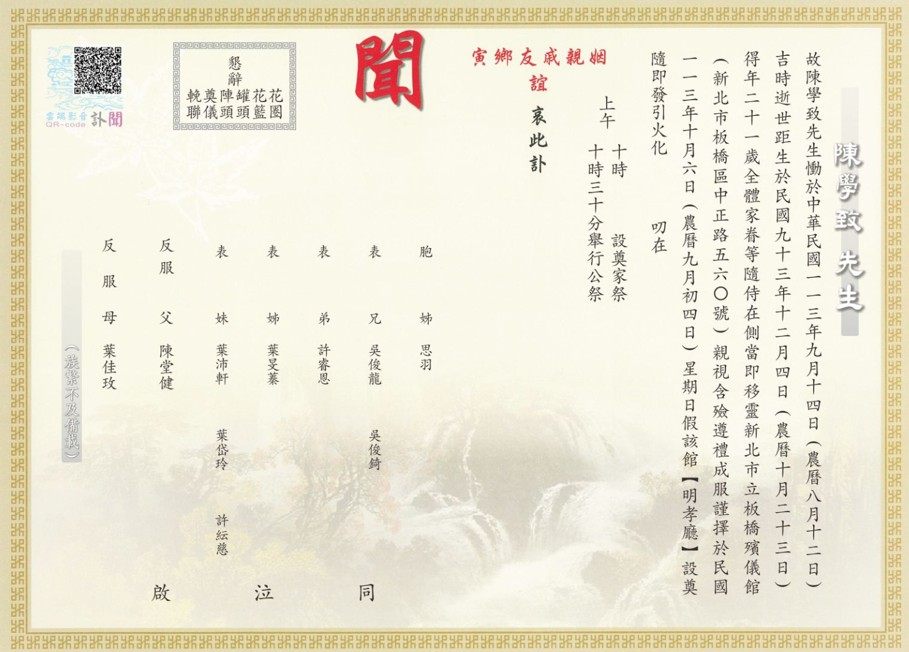 陳學致 先生
故陳學致先生慟於中華民國一一三年九月十四日（農曆八月十二日）
吉時逝世距生於民國九十三年十二月四日（農曆十月二十三日）
得年二十一歲全體家眷等隨侍在側當即移靈新北市立板橋殯儀館
（新北市板橋區中正路五六〇號）親視含殮遵禮成服謹擇於民國
一一三年十月六日（農曆九月初四日）星期日假該館【明孝廳】設奠
隨即發引火化 叨在
上午 十時 設奠家祭
十時三十分舉行公祭
姻親戚友鄉寅
誼
哀此訃
聞
懇辭
花圈
花籃
罐頭
陣頭
奠儀
輓聯
雲端影音
QR-code
訃聞
胞姊 思羽
表兄 吳俊龍 吳俊錡
表弟 許睿恩
表姊 葉旻蓁
表妹 葉沛軒 葉岱玲 許紜慈
反服父 陳堂健
反服母 葉佳玫
（族繁不及備載）
同泣啟